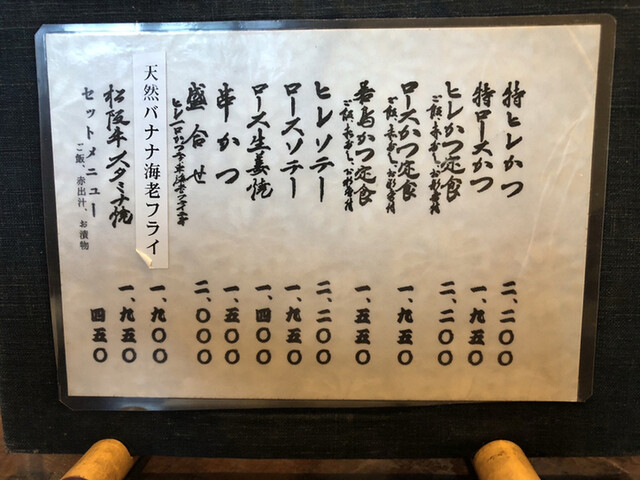 特ヒレかつ 二、二〇〇
特ロースかつ 一、九五〇
ヒレかつ定食 二、二〇〇
ご飯、赤出し、お新香付
ロースかつ定食 一、九五〇
ご飯、赤出し、お新香付
若鳥かつ定食 一、五五〇
ご飯、赤出し、お新香付
ヒレソテー 二、二〇〇
ロースソテー 一、九五〇
ロース生姜焼 一、四〇〇
串かつ 一、五〇〇
盛合せ 二、〇〇〇
天然バナナ海老フライ 一、九〇〇
松阪牛スタミナ焼 一、九五〇
セットメニュー 四五〇
ご飯、赤出汁、お漬物